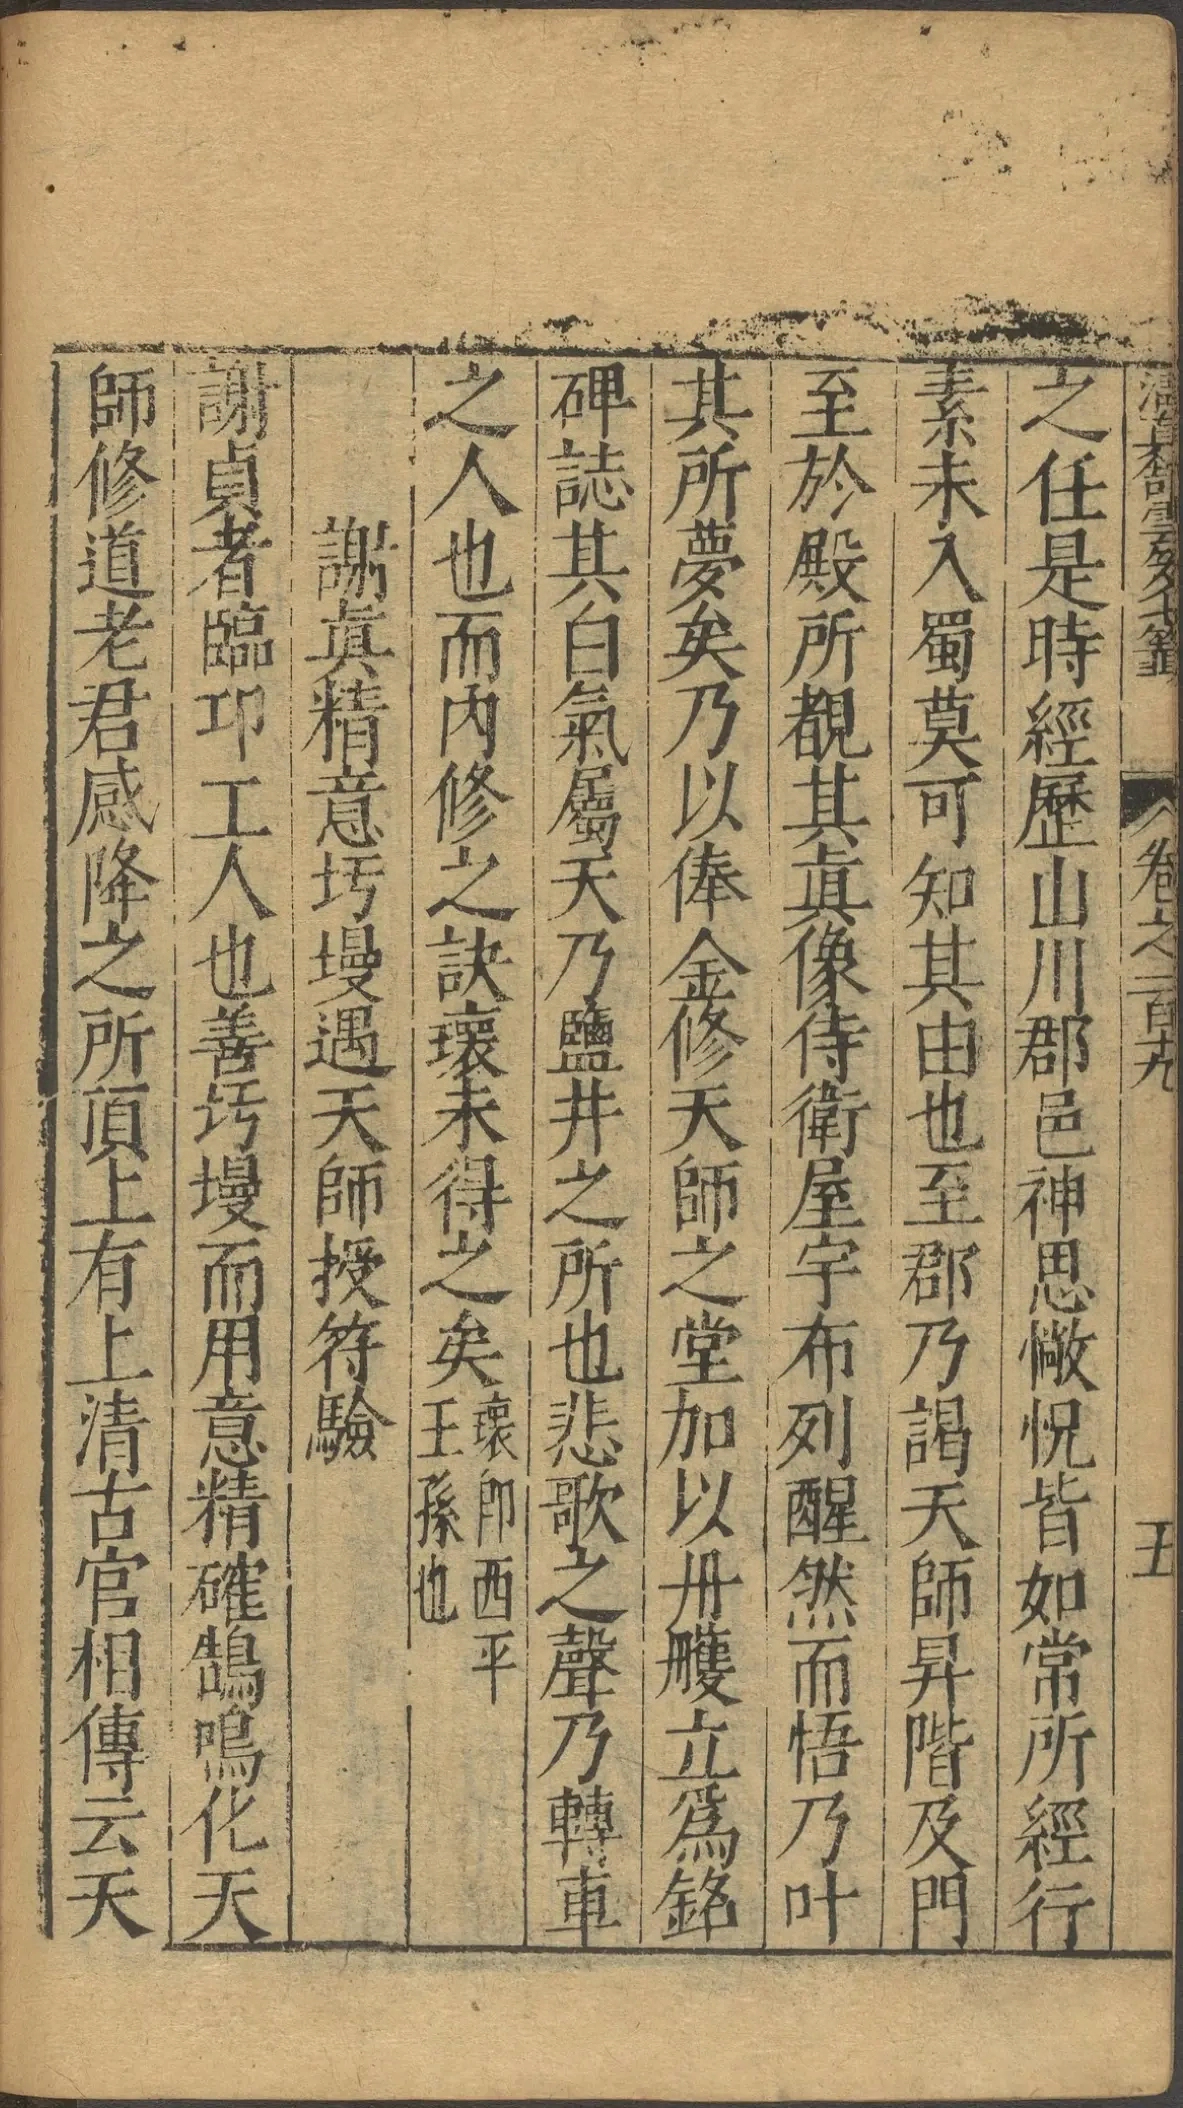 清真杏雲笈七籤 卷之一百九 五
之任是時經歷山川郡邑神思惝怳皆如常所經行
素未入蜀莫可知其由也至郡乃謁天師昇階及門
至於殿所覩其眞像侍衛屋宇布列醒然而悟乃叶
其所夢矣乃以俸金修天師之堂加以丹雘立爲銘
碑誌其白氣屬天乃鹽井之所也悲歌之聲乃轉車
之人也而內修之訣瓌未得之矣瓌卽西平
王孫也
謝眞精意圬墁遇天師授符驗
謝貞者臨卭工人也善圬墁而用意精確鵠鳴化天
師修道老君感降之所頂上有上清古宫相傳云天